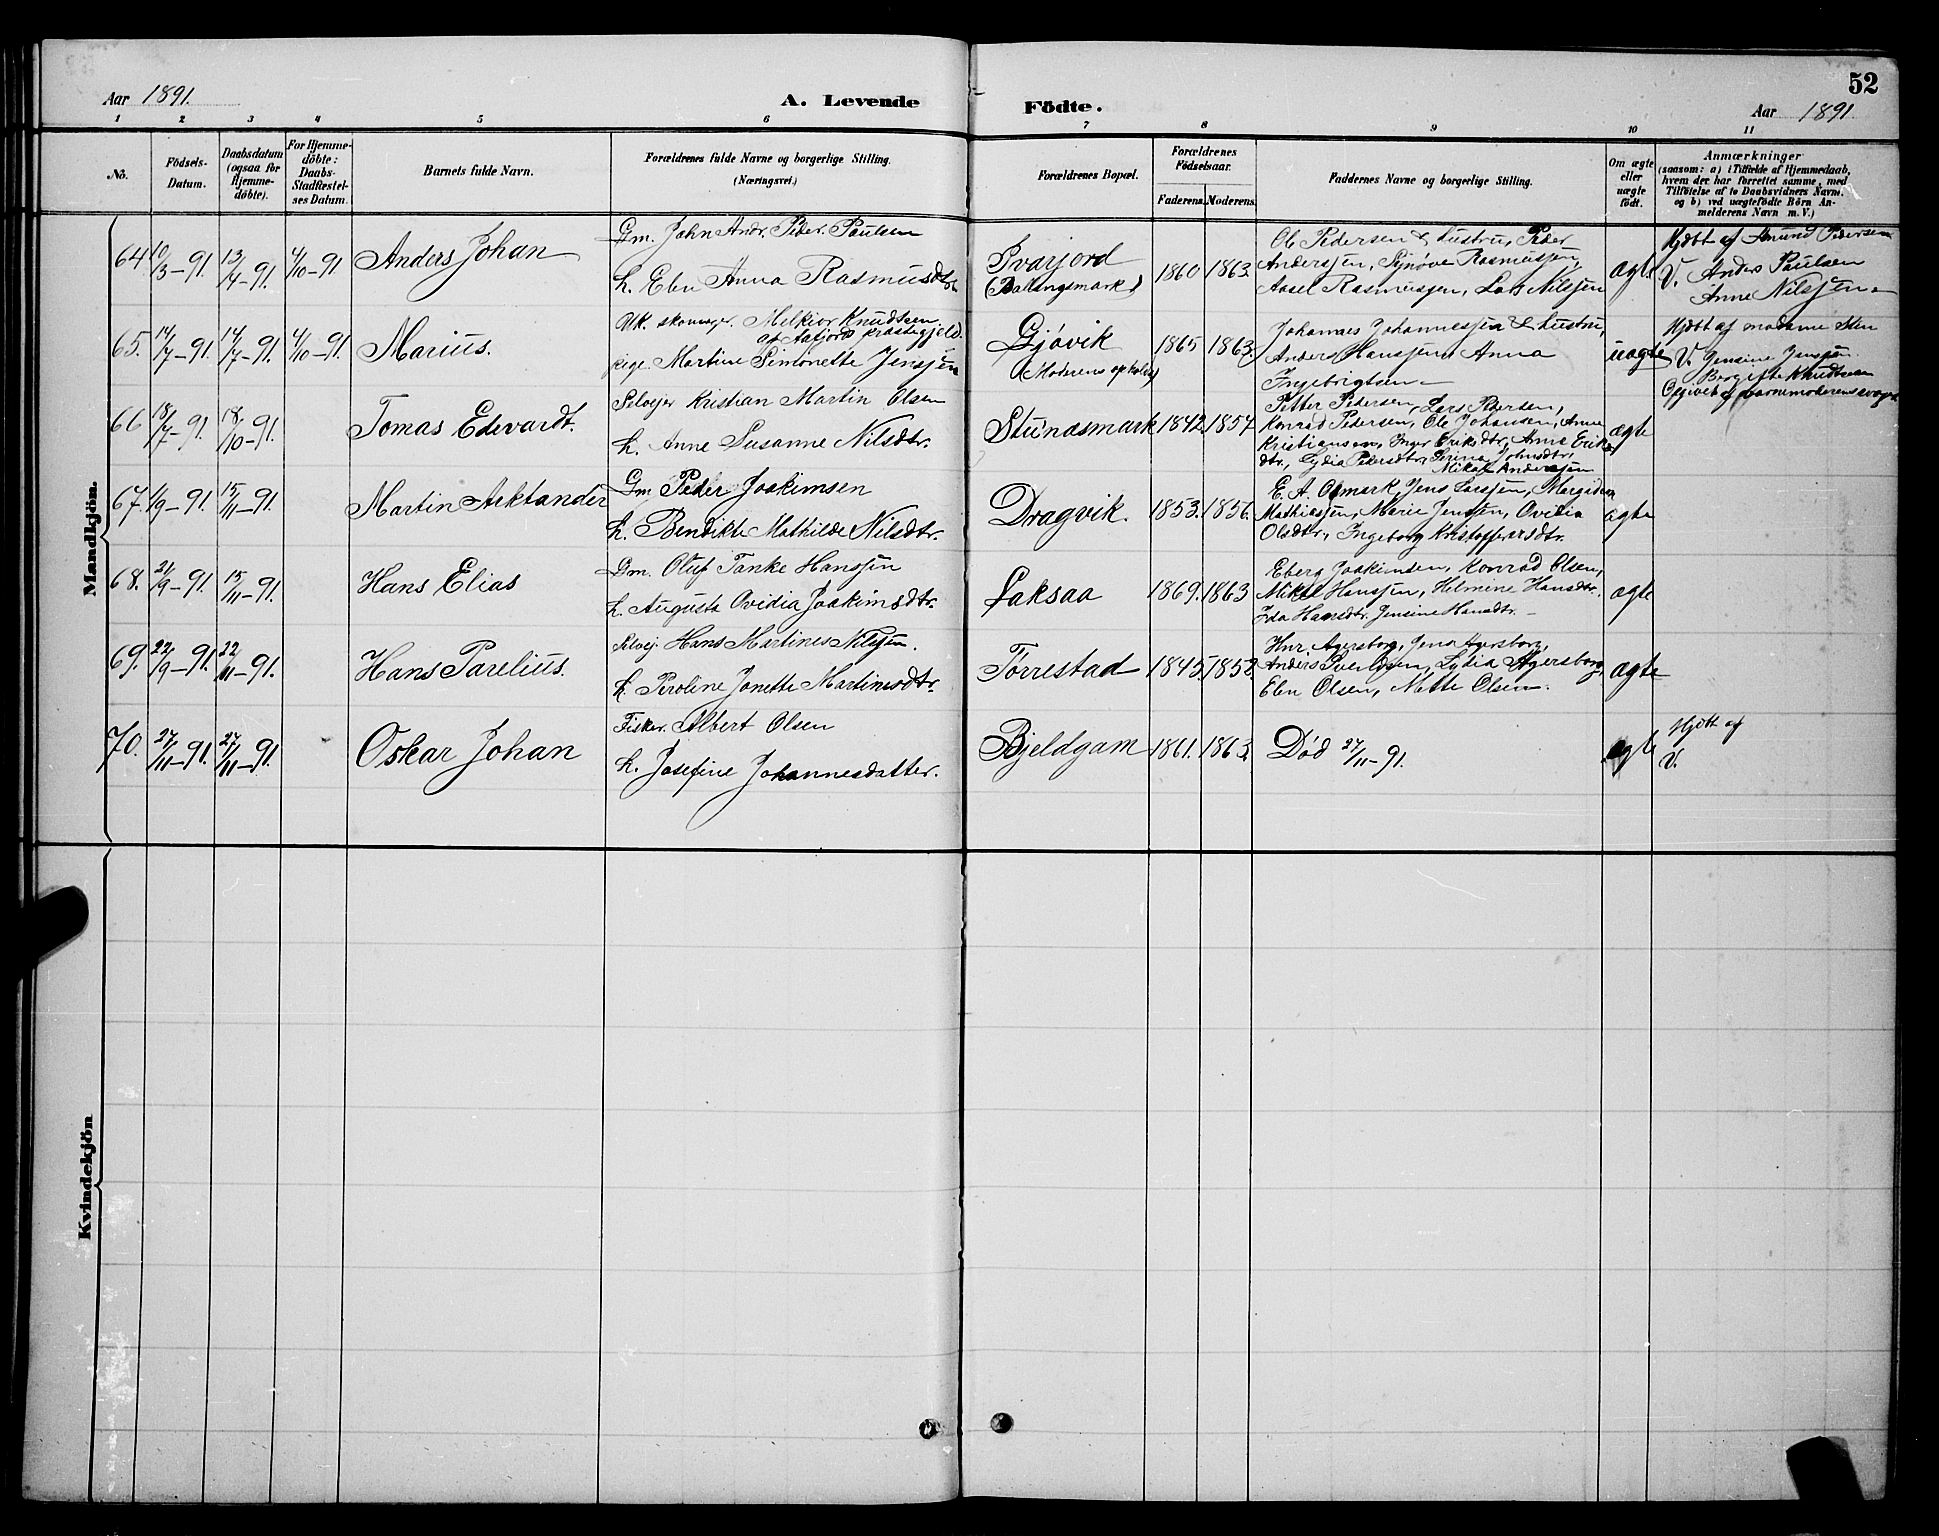 52
Aar 1891.
A. Levende Födte.
Aar 1891
1 2 3 4 5 6 7 8 9 10 11
No.
Födsels-
Datum.
Daabsdatum
(ogsaa for
Hjemme-
döbte).
For Hjemme-
döbte:
Daabs-
Stadfæstel-
ses Datum.
Barnets fulde Navn.
Forældrenes fulde Navne og borgerlige Stilling.
(Næringsvei.)
Forældrenes Bopæl.
Forældrenes
Födselsaar.
Faderens. Moderens.
Faddernes Navne og borgerlige Stilling.
Om ægte
eller
uægte
födt.
Anmærkninger
(saasom: a) i Tilfælde af Hjemmedaab,
hvem der har forrettet samme, med
Tilföielse af to Daabsvidners Navn.
og b) ved uægtefödte Börn An-
melderens Navn m. V.)
Mandkjön.
64 10/3-91. 13/4-91. 4/10-91 Anders Johan
Gm. John Andr. Peder. Paulsen
h. Elen Anna Rasmusdtr.
Ivarjord
(Ballangsmark)
1860 1863.
Ole Pedersen & hustru, Peder
Anderssen, Synøve Rasmussen,
Aasel Rasmussen, Lars Nilssen
ægte
Hjdbt af Amund Pedersen
V. Anders Paulsen
Anne Nilssen
65. 14/7-91. 14/7-91. 4/10-91. Marius.
Uk. skomager. Melkior Knudtsen
af Aafjord præstegjeld.
pige. Martine Simonette Jenssen
Gjøvik
(Moderens ophold)
1865 1863.
Johannes Johannessen & hustru,
Anders Hanssen, Anna
Ingebrigtsen
uægte
Hjdbt af madame Sten
V. Jensine Jenssen.
Bergitte Knudtsen
Opgivet af barnemoderens svoger
66 18/7-91. 18/10-91. Tomas Edvardt.
Selvejer Kristian Martin Olsen
h. Anne Susanne Nilsdtr.
Stunæsmark
1842 1857.
Petter Pedersen, Lars Pedersen,
Konrad Pedersen, Ole Johansen, Anne
Kristiansen, Inger Eriksdtr, Anna Eriks
dtr., Lydia Pedersdtr, Serina Johnsdtr,
Mikal Anderssen
ægte
67. 1/9-91. 15/11-91. Martin Arktander
Gm Peder Joakimsen
h. Bendikte Mathilde Nilsdtr.
Dragvik.
1853. 1856.
E. A. Osmark, Jens Larssen,
Mathiassen, Marie Jenssen, Ovidia
Olsdtr, Ingeborg Kristoffersdtr.
ægte
68. 21/9-91. 15/11-91. Hans Elias
Gm. Oluf Tanke Hanssen
h. Augusta Ovidia Joakimsdtr.
Laksaa
1869. 1863
Eberg Joakimsen, Konrad Olsen,
Mikal Hanssen, Helmine Hansdtr.
Ida Hansdtr. Jensine Hansdtr.
ægte
69. 22/9-91. 22/11-91. Hans Parelius.
Selvej. Hans Martines Nilssen.
h. Peroline Jonette Martinesdtr.
Tørrestad
1845. 1852.
Hnr. Agersborg, Jens Agersborg,
Anders Svendsen, Lydia Agersborg,
Elen Olsen, Mette Olsen.
ægte
70. 27/11-91. 27/11-91. Oskar Johan
Fisker. Albert Olsen
h. Josefine Johannesdatter.
Bjeldgam
1861. 1863.
Død 27/11-91.
ægte
Hjdbt af
V.
Kvindekjön